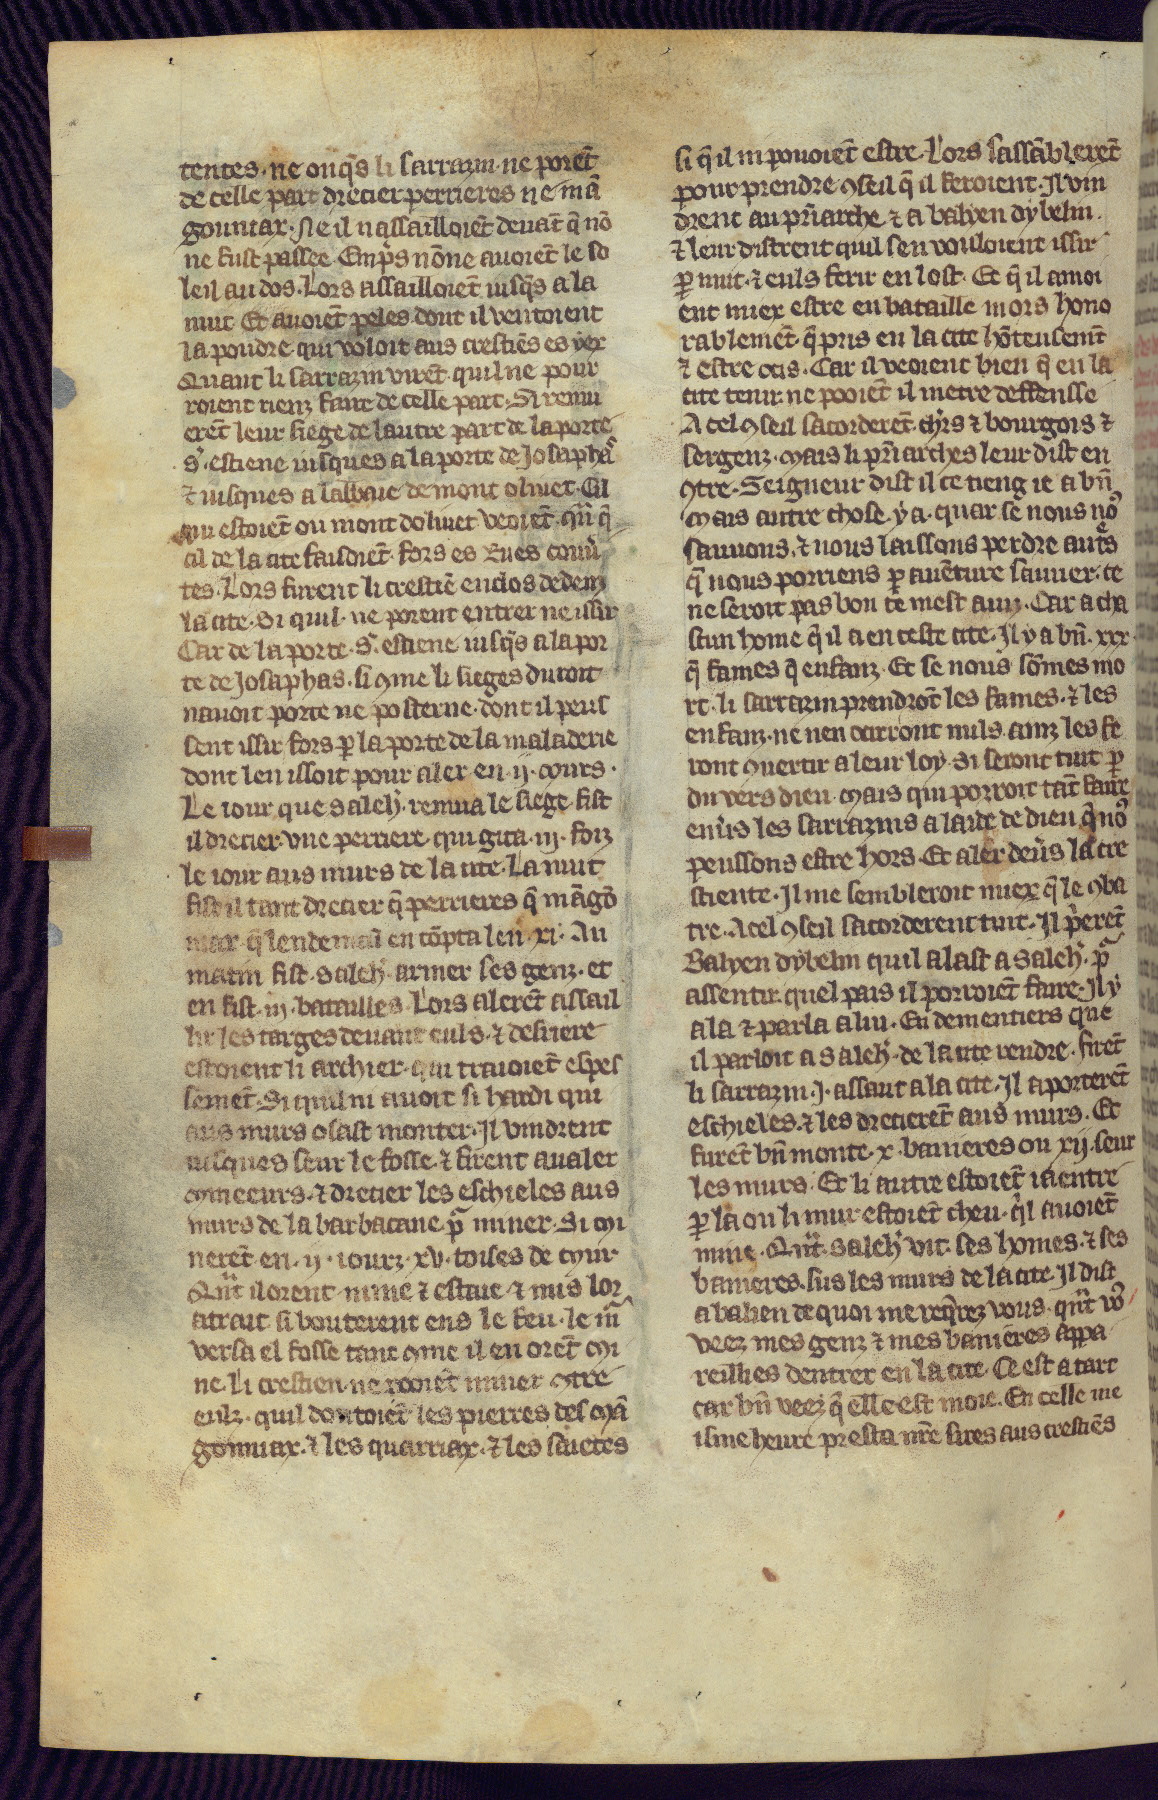 tentes. ne onqs li sarrazin ne porẽt
de celle part drecier perrieres ne mã
gonniax. Ne il nassailloiẽt deuãt q̃ nõ
ne fust passee. Emp̃s nõne auoiẽt le so
leil au dos. Lors assailloiẽt iusq̃s a la
nuit. Et auoiẽt peles dont il ventoient
la poudre qui voloit aus crestiẽs es yex
Quant li sarrazin virẽt quil ne pour
roient rienz faire de celle part. Si remu
erẽt leur siege de lautre part de la porte
s. estiene iusques a la porte de Josapha
⁊ iusques a labbaie de mont oliuet. Cil
qui estoiẽt ou mont doliuet veoiẽt. qñ q̃
cil de la cite faisoiẽt. fors es rues couũ
tes. Lors furent li crestiẽ enclos dedenz
la cite. Si quil ne porent entrer ne issir
Car de la porte. S. estiene iusq̃s a la por
te de Josaphas. si ꝯme li sieges duroit
nauoit porte ne posterne. dont il peus
sent issir fors ꝑ la porte de la maladerie
dont len issoit pour aler en .ij. cours.
Le iour que saleh̃. remua le siege fist
il drecier vne perriere. qui gita .iij. foiz
le iour aus murs de la cite. La nuit
fist il tant drecier q̃ perrieres q̃ mãgõ
niax. q̃ lendemain en cõpta len .xi. Au
matin fist saleh̃. armer ses genz. et
en fist .iij. batailles. Lors alerẽt assail
lir les targes deuant euls. ⁊ derriere
estoient li archier. qui traioiẽt espes
semẽt. Si quil ni auoit si hardi qui
aus murs osast monter. Il vindrent
iusques seur le fosse. ⁊ firent aualer
mineeurs. ⁊ drecier les eschieles aus
murs de la barbacane. pʳ miner. Si mi
nerẽt en .ij. iourz .xv. toises de mur.
Qñt il orent mine ⁊ estaie ⁊ mis lor
atrait si bouterent ens le feu. le mʳ
versa el fosse tant ꝯme il en orẽt mi
ne. Li crestien ne pooiẽt miner ꝯtre
eulz. quil doutoiẽt les pierres des mã
gonniax. ⁊ les quarriax. ⁊ les saietes
si q̃ il ni pouoiẽt estre. Lors sassẽblerẽt
pour prendre ꝯseil q̃ il feroient. Il vin
drent au pr̃iarche. ⁊ a balyen dybelin.
⁊ leur distrent quil sen vouloient issir
ꝑ nuit. ⁊ euls ferir en lost. Et q̃ il amoi
ent miex estre en bataille mors hono
rablemẽt. q̃ pris en la cite hõteusemt̃
⁊ estre ocis. Car il veoient bien q̃ en la
cite tenir. ne pooiẽt il metre deffensse
A cel ꝯseil sacorderẽt. chr̃s ⁊ bourgois ⁊
sergenz. Mais li pr̃iarches leur dist en
ꝯtre. Seigneur dist il ce tieng ie a bñ
Mais autre chose. y a. quar se nous noꝰ
sauuons. ⁊ nous laissons perdre autʳs
q̃ nous porriens ꝑ auẽture sauuer. ce
ne seroit pas bon ce mest auiz. Car a cha
scun hõme q̃ il a en ceste cite. Il y a bñ .xxx.
q̃ fames q̃ enfanz. Et se nous sõmes mo
rt. li sarrazin prendrõt les fames. ⁊ les
enfanz. ne nen ocirront nuls. ainz les fe
ront ꝯuertir a leur loy. Si seront tuit ꝑ
du vers dieu. Mais qui porroit tãt faire
enũs les sarrazins a laide de dieu q̃ noꝰ
peussons estre hors. Et aler deũs la cre
stiente. Il me sembleroit miex q̃ le ꝯba
tre. A cel ꝯseil sacorderent tuit. Il p̃erẽt
Balyen dybelin quil alast a saleh̃. pʳ
assentir. quel pais il porroiẽt faire. Il y
ala ⁊ parla a lui. En dementiers que
il parloit a saleh̃. de la cite rendre. firẽt
li sarrazin .j. assaut a la cite. Il aporterẽt
eschieles. ⁊ les drecierẽt aus murs. Et
furẽt bñ monte .x. banieres ou .xij. seur
les murs. Et li autre estoiẽt ia entre
ꝑ la ou li mur estoiẽt cheu. q̃l auoiẽt
mine. Qñt saleh̃. vit ses hõmes. ⁊ ses
banieres. sus les murs de la cite. Il dist
a balien de quoi me req̃rez vous. qñt voꝰ
veez mes genz ⁊ mes banieres appa
reillies dentrer en la cite. Ce est a tart
car bñ veez q̃ elle est moie. En celle me
isme heure presta nr̃e sires aus crestiẽs